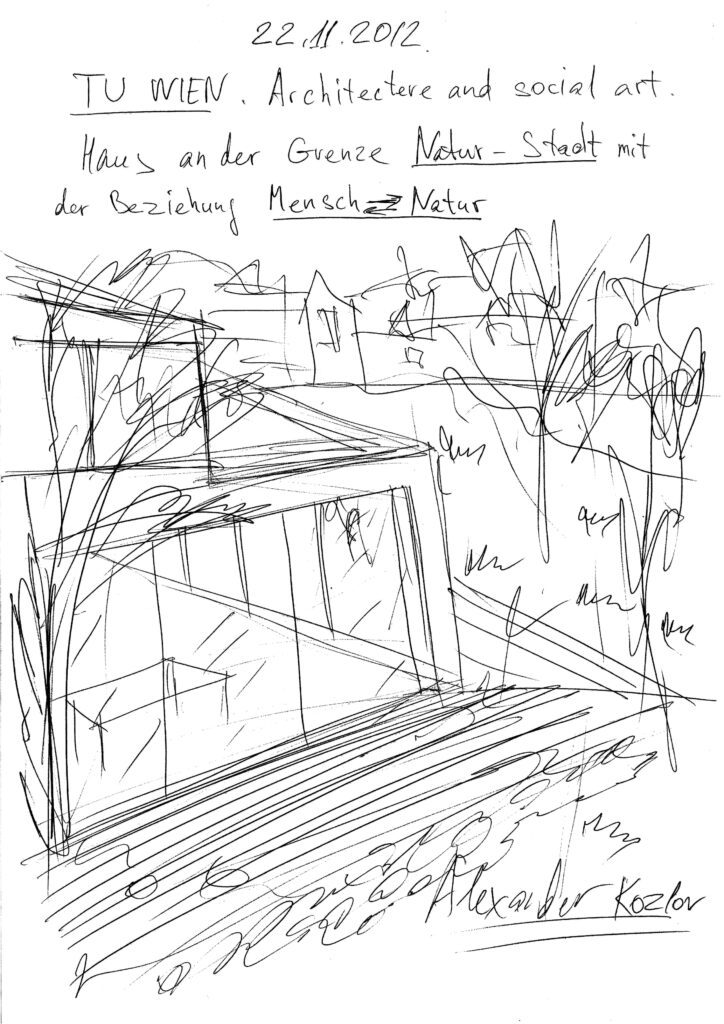 22.11.2012.
TU WIEN. Architectere and social art.
Haus an der Grenze Natur - Stadt mit
der Beziehung Mensch Natur
Alexander Kozlov